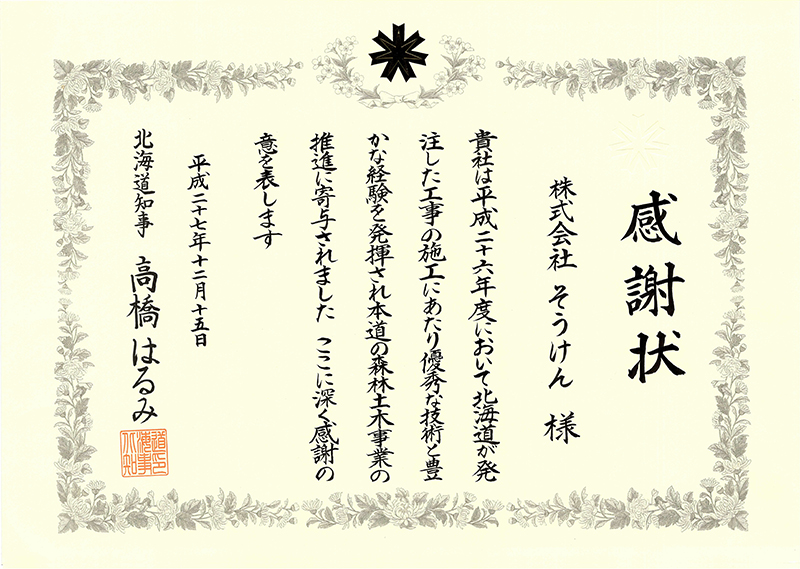 感謝状
株式会社 そうけん 様
貴社は平成二十六年度において北海道が発
注した工事の施工にあたり優秀な技術と豊
かな経験を発揮され本道の森林土木事業の
推進に寄与されました ここに深く感謝の
意を表します
平成二十七年十二月十五日
北海道知事 高橋はるみ